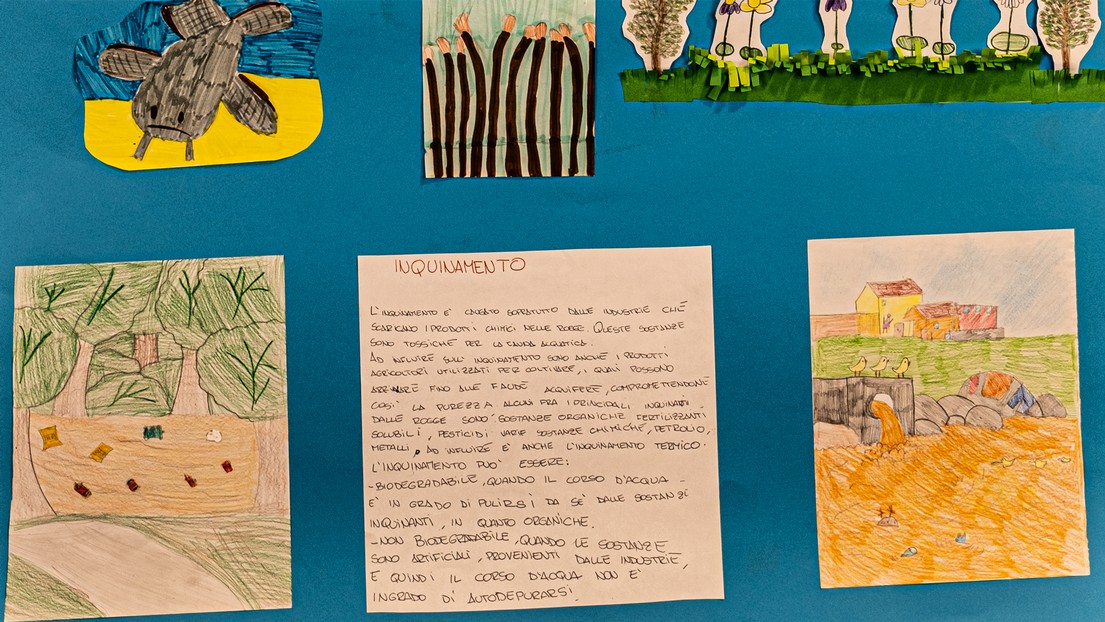 INQUINAMENTO
L'INQUINAMENTO E' CAUSATO SOPRATUTTO DALLE INDUSTRIE CHE
SCARICANO I PRODOTTI CHIMICI NELLE ROGGE. QUESTE SOSTANZE
SONO TOSSICHE PER LA FAUNA ACQUATICA.
AD INFLUIRE SULL'INQUINAMENTO SONO ANCHE I PRODOTTI
AGRICOLTORI UTILIZZATI PER COLTIVARE, I QUALI POSSONO
ARRIVARE FINO ALLE FALDE ACQUIFERE, COMPROMETTENDONE
COSI' LA PUREZZA ALCUNI FRA I PRINCIPALI INQUINANTI
DALLE ROGGE SONO SOSTANZE ORGANICHE FERTILIZZANTI
SOLUBILI, PESTICIDI VARIE SOSTANZE CHIMICHE, PETROLIO,
METALLI. AD INFLUIRE E' ANCHE L'INQUINAMENTO TERMICO.
L'INQUINAMENTO PUO' ESSERE:
-BIODEGRADABILE, QUANDO IL CORSO D'ACQUA
E' IN GRADO DI PULIRSI DA SE' DALLE SOSTANZE
INQUINANTI, IN QUANTO ORGANICHE.
-NON BIODEGRADABILE, QUANDO LE SOSTANZE
SONO ARTIFICIALI, PROVENIENTI DALLE INDUSTRIE,
E QUINDI IL CORSO D'ACQUA NON E'
INGRADO DI AUTODEPURARSI.